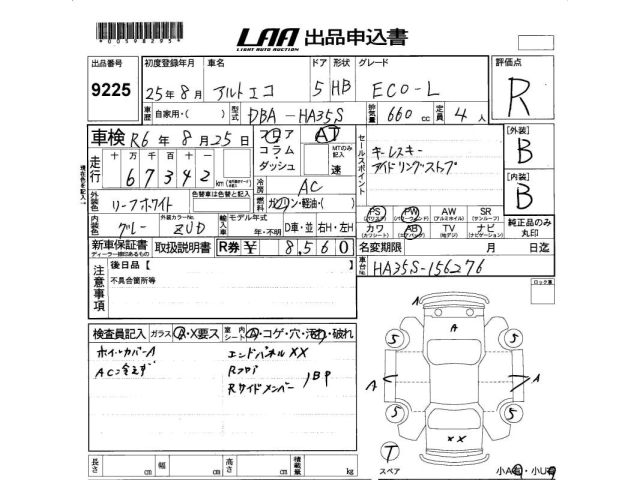 *00598295*
LAA 出品申込書
LIGHT AUTO AUCTION
出品番号 初度登録年月 車名 ドア 形状 グレード 評価点
9225 25年8月 アルトエコ 5 HB ECO-L R
車歴 自家用・( ) 型式 DBA-HA35S 排気量 660cc 定員 4人
車検 R6年8月25日 フロア コラム・ダッシュ AT MTのみ記入 速
セールスポイント
キーレスキー
アイドリングストップ
[外装] B
[内装] B
走行 十万千百十 67342 km
冷房 AC
外装色 リーフホワイト 色替車は色替と記入 燃料 ガソリン・軽油・( )
PS (パワステ) PW (パワーウィンド) AW (アルミホイル) SR (サンルーフ)
カワ (カワシート) AB (エアバック) TV (地デジ) ナビ (ナビゲーション)
純正品のみ丸印
内装色 グレー 外装カラーNo. ZUD 輸入車 モデル年式 年・不明 D車・並 右H・左H
新車保証書 ディーラー捺印あるもの 取扱説明書 R券 ¥ 8,560 名変期限 月 日迄
車台No. HA35S-156276
注意事項
後日品【
不具合箇所等
ロック車
検査員記入 ガラス A・X要ス 室内シート A・コゲ・穴・汚れ・破れ
ホイルカバーA
AC冷えず
エンドパネルXX
Rフロア
Rサイドメンバー
A
5 5
A A
5 5
XX
T
スペア
小A 小U
長さ cm 幅 cm 高さ cm 積載量 kg